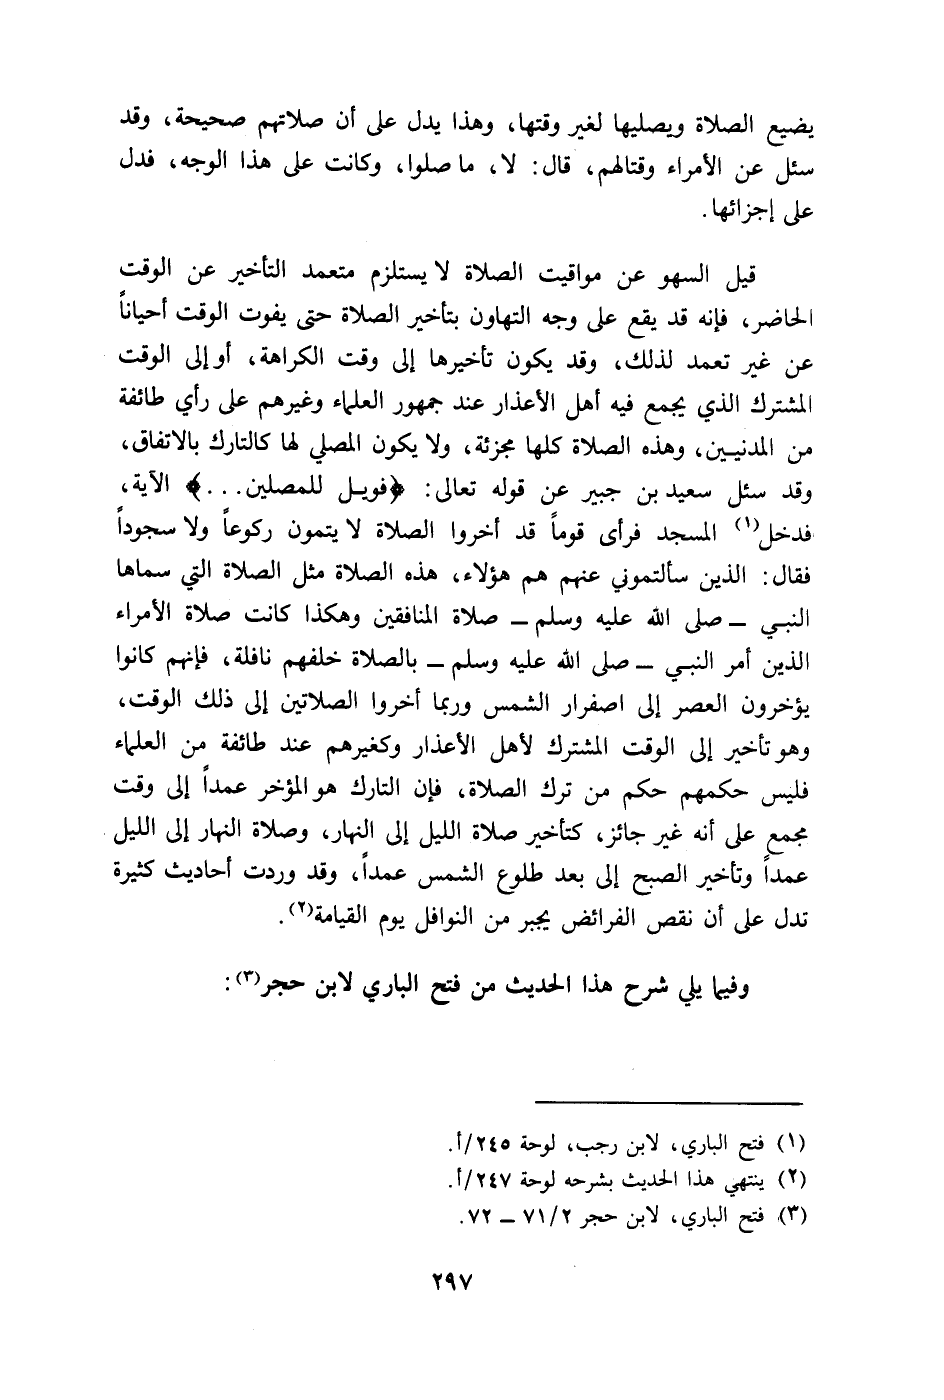 يضيع الصلاة ويصليها لغير وقتها، وهذا يدل على أن صلاتهم صحيحة، وقد
سئل عن الأمراء وقتالهم، قال: لا، ما صلوا، وكانت على هذا الوجه، فدل
على إجزائها.
قيل السهو عن مواقيت الصلاة لا يستلزم متعمد التأخير عن الوقت
الحاضر، فإنه قد يقع على وجه التهاون بتأخير الصلاة حتى يفوت الوقت أحياناً
عن غير تعمد لذلك، وقد يكون تأخيرها إلى وقت الكراهة، أو إلى الوقت
المشترك الذي يجمع فيه أهل الأعذار عند جمهور العلماء وغيرهم على رأي طائفة
من المدنيين، وهذه الصلاة كلها مجزئة، ولا يكون المصلي لها كالتارك بالاتفاق،
وقد سئل سعيد بن جبير عن قوله تعالى: ﴿فويل للمصلين...﴾ الآية،
فدخل(١) المسجد فرأى قوماً قد أخروا الصلاة لا يتمون ركوعاً ولا سجوداً
فقال: الذين سألتموني عنهم هم هؤلاء، هذه الصلاة مثل الصلاة التي سماها
النبي ـ صلى الله عليه وسلم ـ صلاة المنافقين وهكذا كانت صلاة الأمراء
الذين أمر النبي ـ صلى الله عليه وسلم ـ بالصلاة خلفهم نافلة، فإنهم كانوا
يؤخرون العصر إلى اصفرار الشمس وربما أخروا الصلاتين إلى ذلك الوقت،
وهو تأخير إلى الوقت المشترك لأهل الأعذار وكغيرهم عند طائفة من العلماء
فليس حكمهم حكم من ترك الصلاة، فإن التارك هو المؤخر عمداً إلى وقت
مجمع على أنه غير جائز، كتأخير صلاة الليل إلى النهار، وصلاة النهار إلى الليل
عمداً وتأخير الصبح إلى بعد طلوع الشمس عمداً، وقد وردت أحاديث كثيرة
تدل على أن نقص الفرائض يجبر من النوافل يوم القيامة(٢).
وفيما يلي شرح هذا الحديث من فتح الباري لابن حجر(٣):
(١) فتح الباري، لابن رجب، لوحة ٢٤٥/أ.
(٢) ينتهي هذا الحديث بشرحه لوحة ٢٤٧/أ.
(٣) فتح الباري، لابن حجر ٧١/٢ ـ ٧٢.
٢٩٧